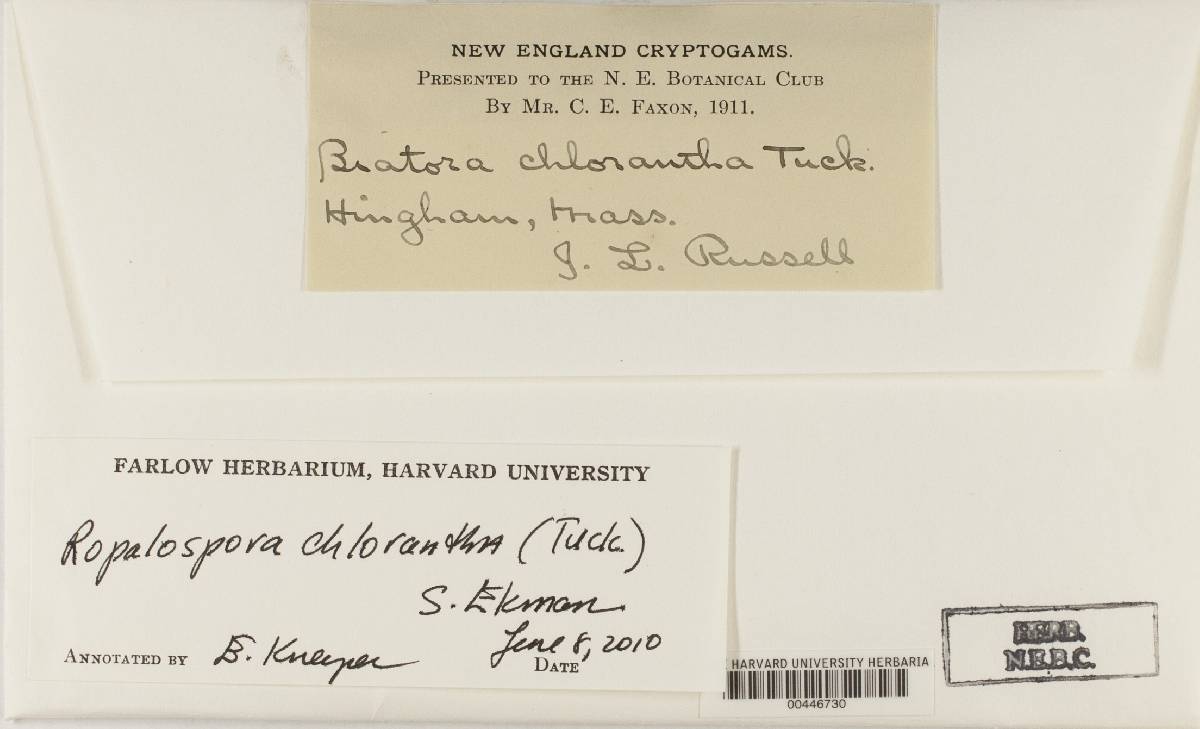 NEW ENGLAND CRYPTOGAMS.
PRESENTED TO THE N. E. BOTANICAL CLUB
BY MR. C. E. FAXON, 1911.
Biatora chlorantha Tuck.
Hingham, Mass.
J. L. Russell
FARLOW HERBARIUM, HARVARD UNIVERSITY
Ropalospora chlorantha (Tuck.)
S. Ekman
ANNOTATED BY E. Kneiper June 8, 2010
DATE
HARVARD UNIVERSITY HERBARIA
00446730
HERB.
N.E.B.C.